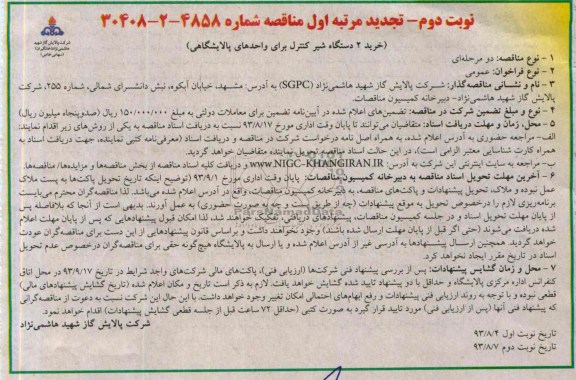 نوبت دوم- تجدید مرتبه اول مناقصه شماره ۴۸۵۸-۲-۳۰۴۰۸
(خرید ۲ دستگاه شیر کنترل برای واحدهای پالایشگاهی)
شرکت پالایش گاز شهید
۱ - نوع مناقصه: دو مرحله‌ای
۲ - نوع فراخوان: عمومی
۳ - نام و نشانی مناقصه‌گذار: شرکت پالایش گاز شهید هاشمی‌نژاد (SGPC) به آدرس: مشهد، خیابان آبکوه، نبش دانشسرای شمالی، شماره ۲۵۵، شرکت
پالایش گاز شهید هاشمی‌نژاد- دبیرخانه کمیسیون مناقصات.
۴ - نوع و مبلغ تضمین شرکت در مناقصه: تضمین‌های اعلام شده در آیین‌نامه تضمین برای معاملات دولتی به مبلغ ۱۵۰/۰۰۰/۰۰۰ ریال (صدوپنجاه میلیون ریال)
۵ - محل، زمان و مهلت دریافت اسناد: متقاضیان می‌توانند تا پایان وقت اداری مورخ ۹۳/۸/۱۷ نسبت به دریافت اسناد مناقصه به یکی از روش‌های زیر اقدام نمایند:
الف- مراجعه حضوری به آدرس اعلام شده، به همراه اصل نامه درخواست شرکت در مناقصه و دریافت اسناد (معرفی‌نامه کتبی نماینده، جهت دریافت اسناد به
همراه کارت شناسایی معتبر الزامی است)، در این حالت اسناد مناقصه تحویل نماینده متقاضیان خواهد گردید.
ب- مراجعه به سایت اینترنتی این شرکت به آدرس: WWW.NIGC-KHANGIRAN.IR و دریافت کلیه اسناد مناقصه از بخش مناقصه‌ها و مزایده‌ها/ مناقصه‌ها.
۶ - آخرین مهلت تحویل اسناد مناقصه به دبیرخانه کمیسیون مناقصات: پایان وقت اداری مورخ ۹۳/۹/۱ (توضیح اینکه تاریخ تحویل پاکت‌ها به پست ملاک
عمل نبوده و ملاک، تحویل پیشنهادات و پاکت‌های مناقصه، به دبیرخانه کمیسیون مناقصات، واقع در آدرس اعلام شده می‌باشد. لذا مناقصه‌گران محترم می‌بایست
برنامه‌ریزی لازم را درخصوص تحویل به موقع پیشنهادات (چه از طریق پست و چه به صورت حضوری) به عمل آورند. بدیهی است از آنجا که بلافاصله پس
از پایان مهلت تحویل اسناد و در جلسه کمیسیون مناقصات، پیشنهادهای دریافتی، تفکیک خواهند شد، لذا امکان قبول پیشنهادهایی که پس از پایان مهلت اعلام
شده دریافت می‌شوند (حتی اگر قبل از پایان مهلت ارسال شده باشند) وجود نخواهند داشت و براساس قانون پیشنهادهایی از این دست برای مناقصه‌گران عودت
خواهد گردید. همچنین ارسال پیشنهادها به آدرسی غیر از آدرس اعلام شده و یا ارسال به پالایشگاه هیچ‌گونه حقی برای مناقصه‌گران درخصوص عدم تحویل
اسناد در تاریخ مقرر ایجاد نخواهد کرد.
۷ - محل و زمان گشایش پیشنهادات: پس از بررسی پیشنهاد فنی شرکت‌ها (ارزیابی فنی)، پاکت‌های مالی شرکت‌های واجد شرایط در تاریخ ۹۳/۹/۱۷ در محل اتاق
کنفرانس اداره مرکزی پالایشگاه و حداقل با دو پیشنهاد تایید شده گشایش خواهد یافت. لازم به ذکر است تاریخ و مکان اعلام شده (تاریخ گشایش پیشنهادهای مالی)
قطعی نبوده و با توجه به روند ارزیابی فنی پیشنهادات و رفع ابهام‌های احتمالی امکان تغییر وجود خواهد داشت. با این حال این شرکت نسبت به دعوت از مناقصه‌گرانی
که پیشنهاد فنی آنها (پس از ارزیابی فنی) مورد تایید قرار گیرد به صورت کتبی (حداقل ۷۲ ساعت قبل از جلسه قطعی گشایش پیشنهادات) اقدام خواهد نمود.
شرکت پالایش گاز شهید هاشمی‌نژاد
تاریخ نوبت اول ۹۳/۸/۴
تاریخ نوبت دوم ۹۳/۸/۷